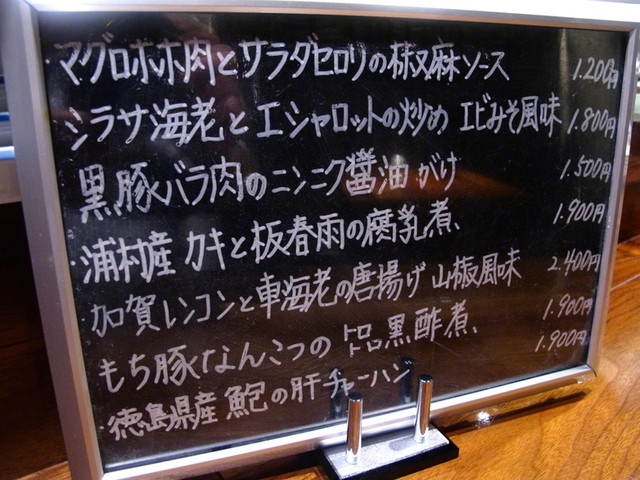 ・マグロホホ肉とサラダセロリの椒麻ソース 1.200円
シラサ海老とエシャロットの炒め エビみそ風味 1.800円
黒豚バラ肉のニンニク醤油がけ 1.500円
・浦村産カキと板春雨の腐乳煮 1.900円
加賀レンコンと車海老の唐揚げ 山椒風味 2.400円
もち豚なんこつの トロトロ黒酢煮 1.900円
徳島県産 鮑の肝チャーハン 1.900円